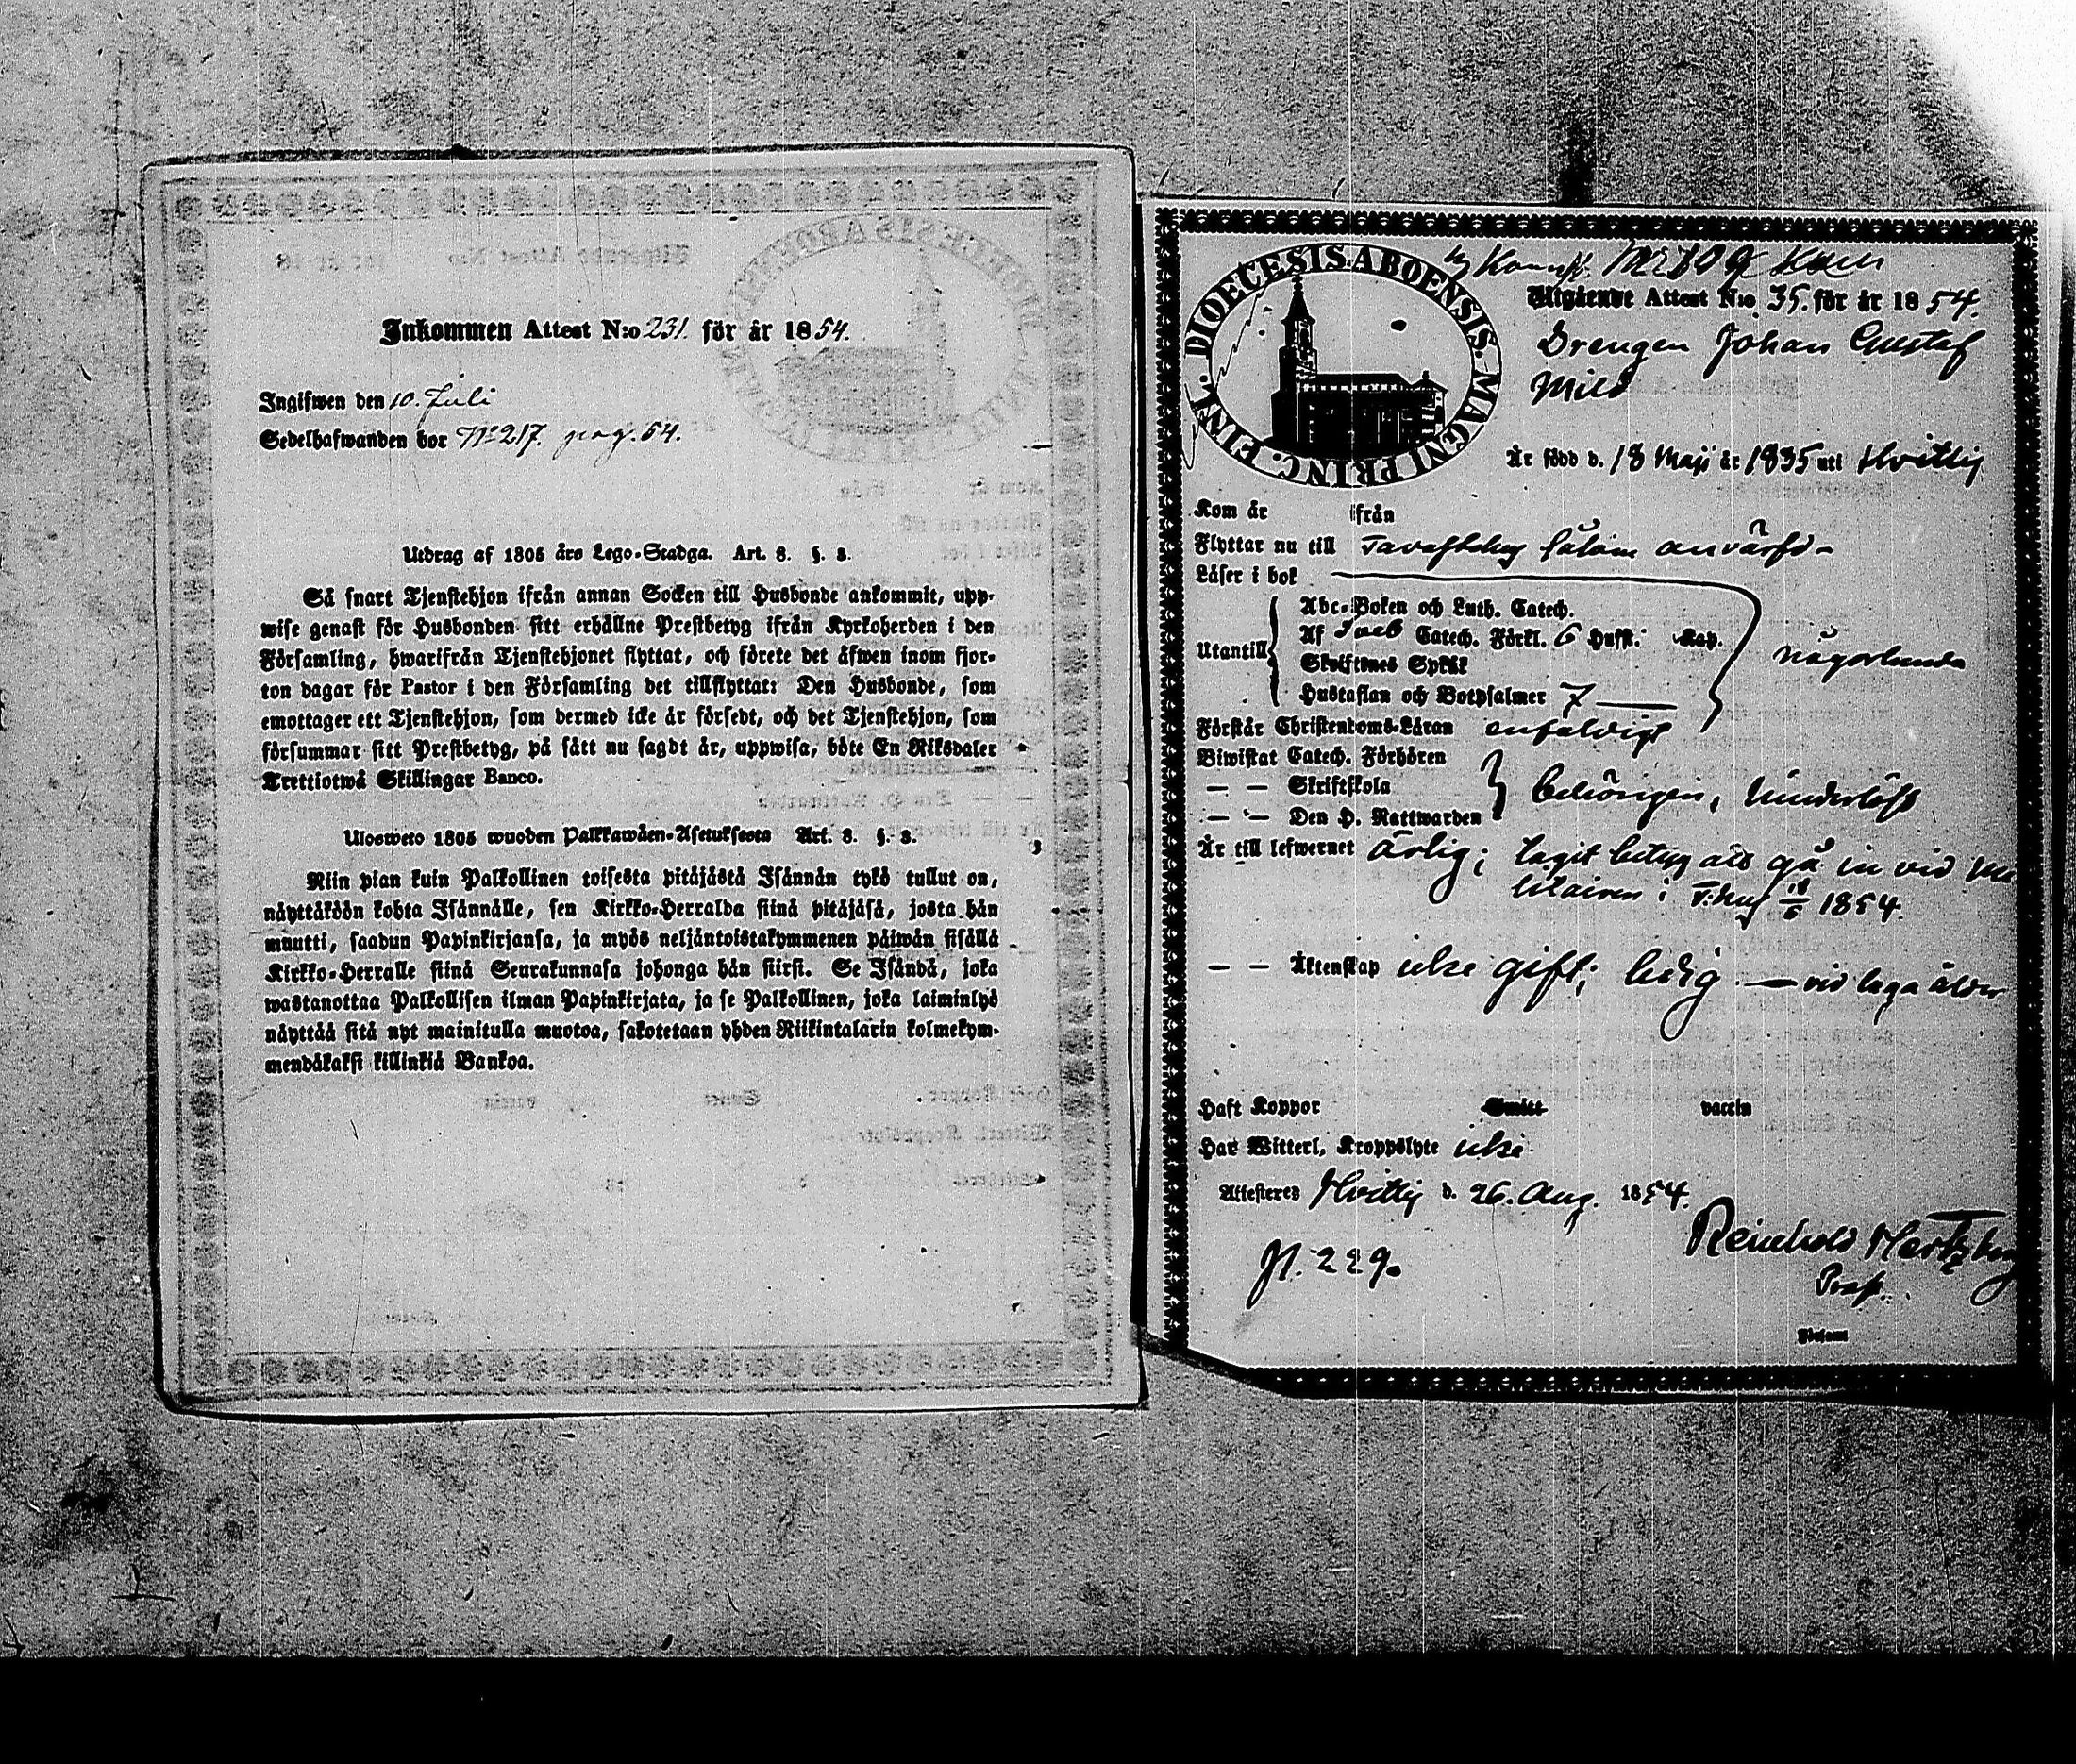 Inkommen Attest N:o 231. för år 1854.
Ingifwen den 10. Juli
Sedelhafwanden bor No 217. pag. 54.
Utdrag af 1805 års Lego-Stadga. Art. 8. §. 8.
Så snart Tjenstehjon ifrån annan Socken till Husbonde ankommit, upp-
wise genast för Husbonden sitt erhållne Prestbetyg ifrån Kyrkoherden i den
Församling, hwarifrån Tjenstehjonet flyttat, och förete det äfwen inom fjor-
ton dagar för Pastor i den Församling det tillflyttat: Den Husbonde, som
emottager ett Tjenstehjon, som dermed icke är försedt, och det Tjenstehjon, som
försummar sitt Prestbetyg, på sätt nu sagdt är, uppwisa, böte En Riksdaler
Trettiotwå Skillingar Banco.
Ulosweto 1805 wuoden Palkkawäen-Asetuksesta Art. 8. §. 8.
Niin pian kuin Palkollinen toisesta pitäjästä Isännän tykö tullut on,
näyttäköön kohta Isännälle, sen Kirkko-Herralda siinä pitäjäsä, josta hän
muutti, saadun Papinkirjansa, ja myös neljäntoistakymmenen päiwän sisällä
Kirkko-Herralle siinä Seurakunnasa johonga hän siirsi. Se Isändä, joka
wastanottaa Palkollisen ilman Papinkirjata, ja se Palkollinen, joka laiminlyö
näyttää sitä nyt mainitulla muotoa, sakotetaan yhden Riikintalarin kolmekym-
mendäkaksi killinkiä Bankoa.
DIOECESIS ABOENSIS. MAGNI PRINC. FINL.
Utgående Attest N:o 35. för år 1854.
Drengen Johan Gustaf
Mild
Är född d. 18 Maji år 1835 uti Hvittis
Kom år ifrån
Flyttar nu till Tavastehus såsom anvärfd
Läser i bok
Abc-Boken och Luth. Catech.
Utantill Af Sveb Catech. Förkl. 6 Hufst: Kap. någorlunda
Skriftenes Språk
Hustaflan och Botpsalmer 7
Förstår Christendoms-Läran enfaldigt
Biwistat Catech. Förhören
— — Skriftskola behörigen,
— — Den H. Nattwarden
Är till lefwernet ärlig; tagit betyg att gå in vid
litairen i T.hus 1854.
— — Äktenskap icke gift; ledig — vid laga ålder
Haft Koppor Smitt vaccin
Har Witterl. Kroppslyte icke
Attesteres Hvittis d. 26. Aug. 1854.
Reinhold Hertzberg
Prost.
N. 229.
Pastor